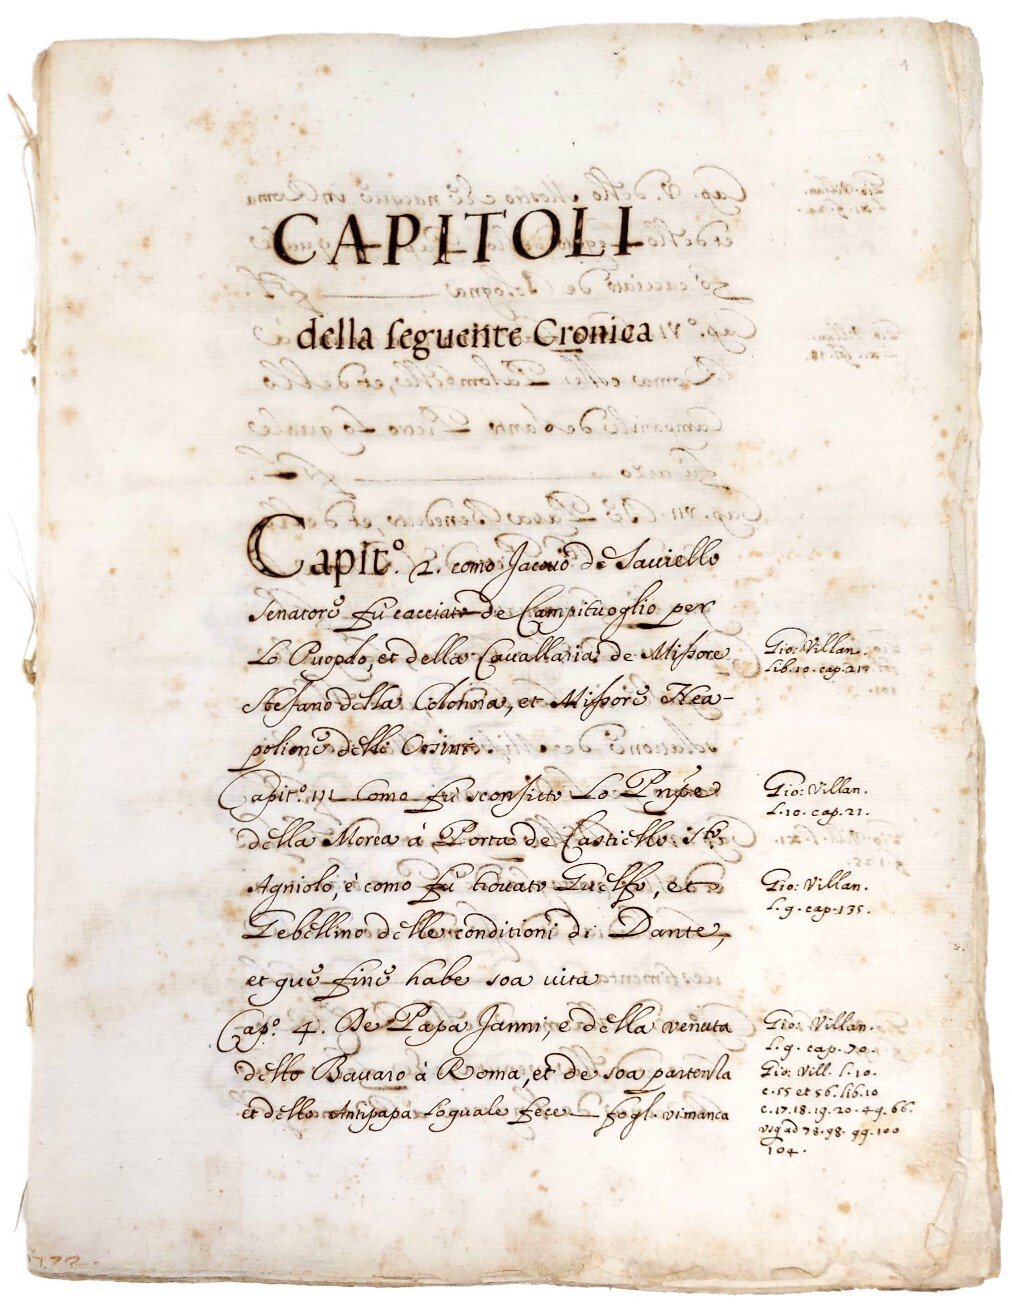 1
CAPITOLI
della seguente Cronica
Capit.º 2. como Jacovo de Saviello
senatore fu cacciato de Campituoglio per
Lo Puopolo, et della Cavallaria de Missore
Stefano della Colonna, et Missore Nea-
polione delli Orsini.
Gio: Villan.
Lib. 10. cap. 21.
Capit.º III Como fu sconfitto Lo Prñpe
della Morea à Porta de Castiello Sto.
Agniolo, è como fu trovato Guelfo, et
Gebellino delle conditioni di Dante,
et que fine habe soa vita
Gio: Villan.
L. 10. cap. 21.
Gio: Villan.
L. 9. cap. 135.
Cap.º 4. De Papa Janni, e della venuta
dello Bavaro à Roma, et de soa partenza
et dello Antipapa loquale fece fogl. vi manca
Gio: Villan.
L. 9. cap. 70.
Gio: Vill. l. 10.
c. 55 et 56. lib. 10
c. 17. 18. 19. 20. 49. 66.
usq ad 73. 98. 99. 100
104.